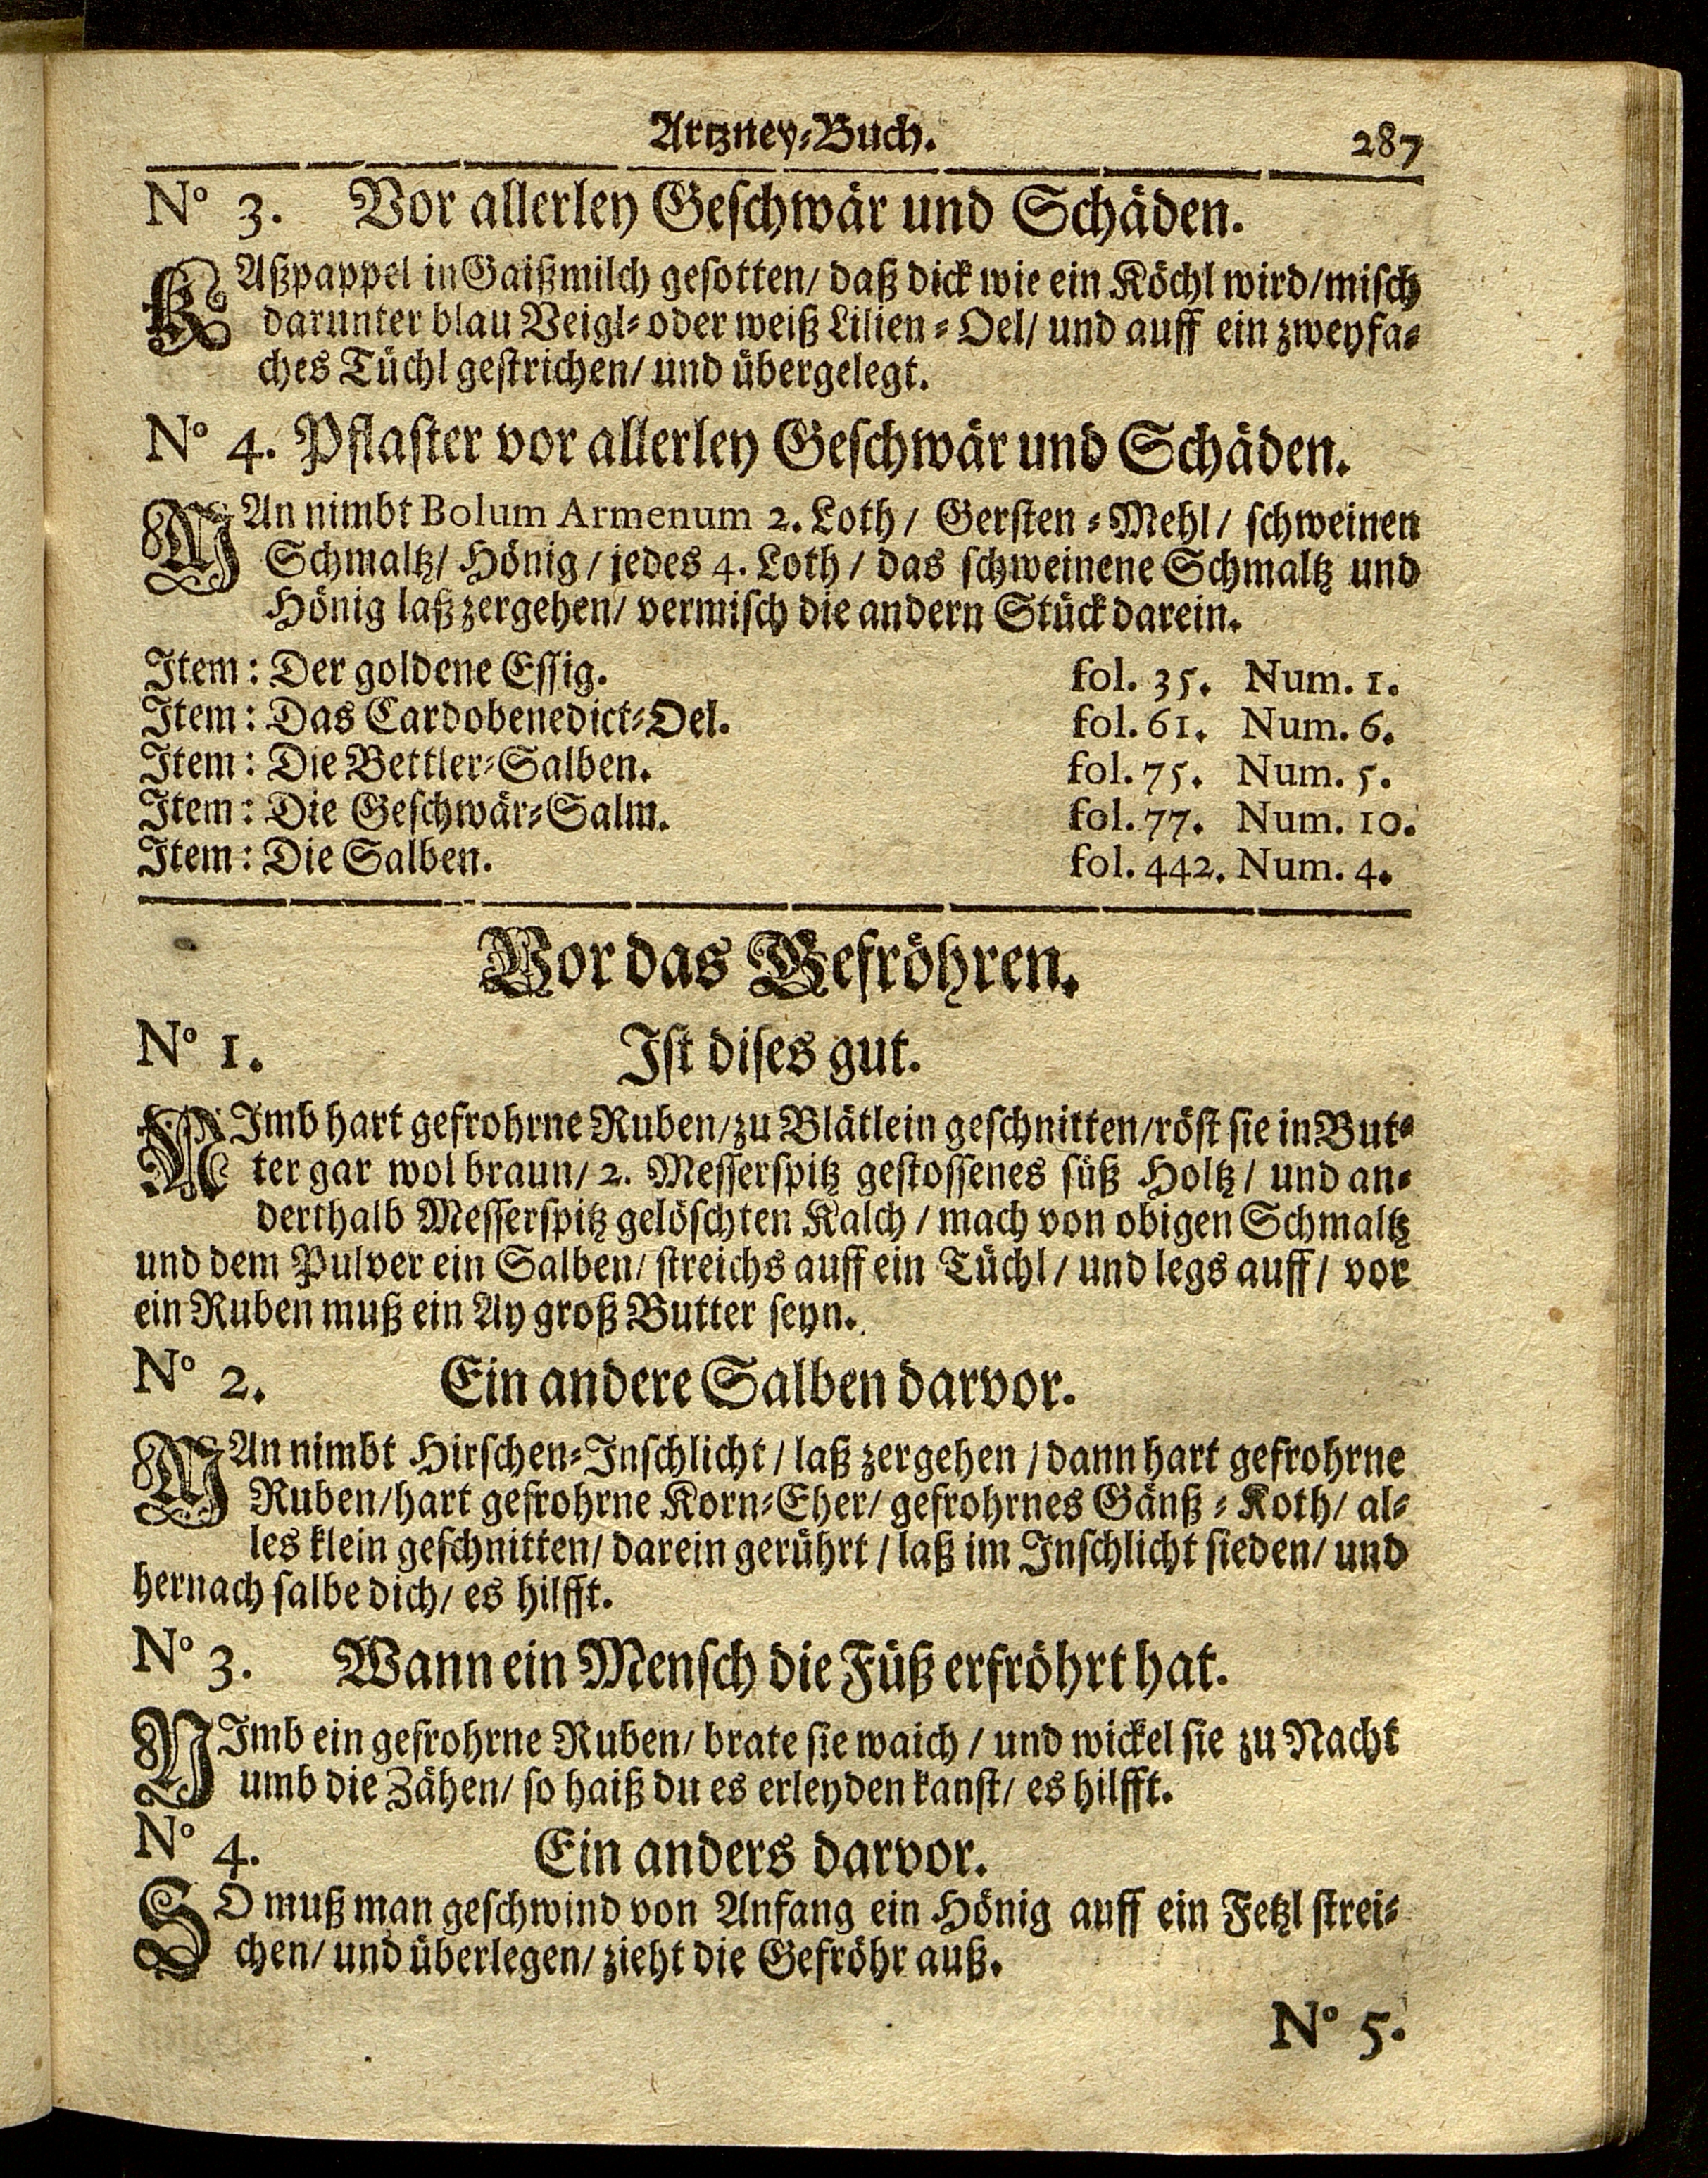 Artzney-Buch. 287
N° 3. Vor allerley Geschwär und Schäden.
KAßpappel in Gaißmilch gesotten/ daß dick wie ein Köchl wird/ misch
darunter blau Veigl- oder weiß Lilien-Oel/ und auff ein zweyfa-
ches Tüchl gestrichen/ und übergelegt.
N° 4. Pflaster vor allerley Geschwär und Schäden.
MAn nimbt Bolum Armenum 2. Loth/ Gersten-Mehl/ schweinen
Schmaltz/ Hönig/ jedes 4. Loth/ das schweinene Schmaltz und
Hönig laß zergehen/ vermisch die andern Stück darein.
Item: Der goldene Essig. fol. 35. Num. 1.
Item: Das Cardobenedict-Oel. fol. 61. Num. 6.
Item: Die Bettler-Salben. fol. 75. Num. 5.
Item: Die Geschwär-Salm. fol. 77. Num. 10.
Item: Die Salben. fol. 442. Num. 4.
Vor das Gefröhren.
N° 1. Ist dises gut.
NImb hart gefrohrne Ruben/ zu Blätlein geschnitten/ röst sie in But-
ter gar wol braun/ 2. Messerspitz gestossenes süß Holtz/ und an-
derthalb Messerspitz gelöschten Kalch/ mach von obigen Schmaltz
und dem Pulver ein Salben/ streichs auff ein Tüchl/ und legs auff/ vor
ein Ruben muß ein Ay groß Butter seyn.
N° 2. Ein andere Salben darvor.
MAn nimbt Hirschen-Inschlicht/ laß zergehen/ dann hart gefrohrne
Ruben/ hart gefrohrne Korn-Eher/ gefrohrnes Gänß-Koth/ al-
les klein geschnitten/ darein gerührt/ laß im Inschlicht sieden/ und
hernach salbe dich/ es hilfft.
N° 3. Wann ein Mensch die Füß erfröhrt hat.
NImb ein gefrohrne Ruben/ brate sie waich/ und wickel sie zu Nacht
umb die Zähen/ so haiß du es erleyden kanst/ es hilfft.
N° 4. Ein anders darvor.
SO muß man geschwind von Anfang ein Hönig auff ein Fetzl strei-
chen/ und überlegen/ zieht die Gefröhr auß.
N° 5.